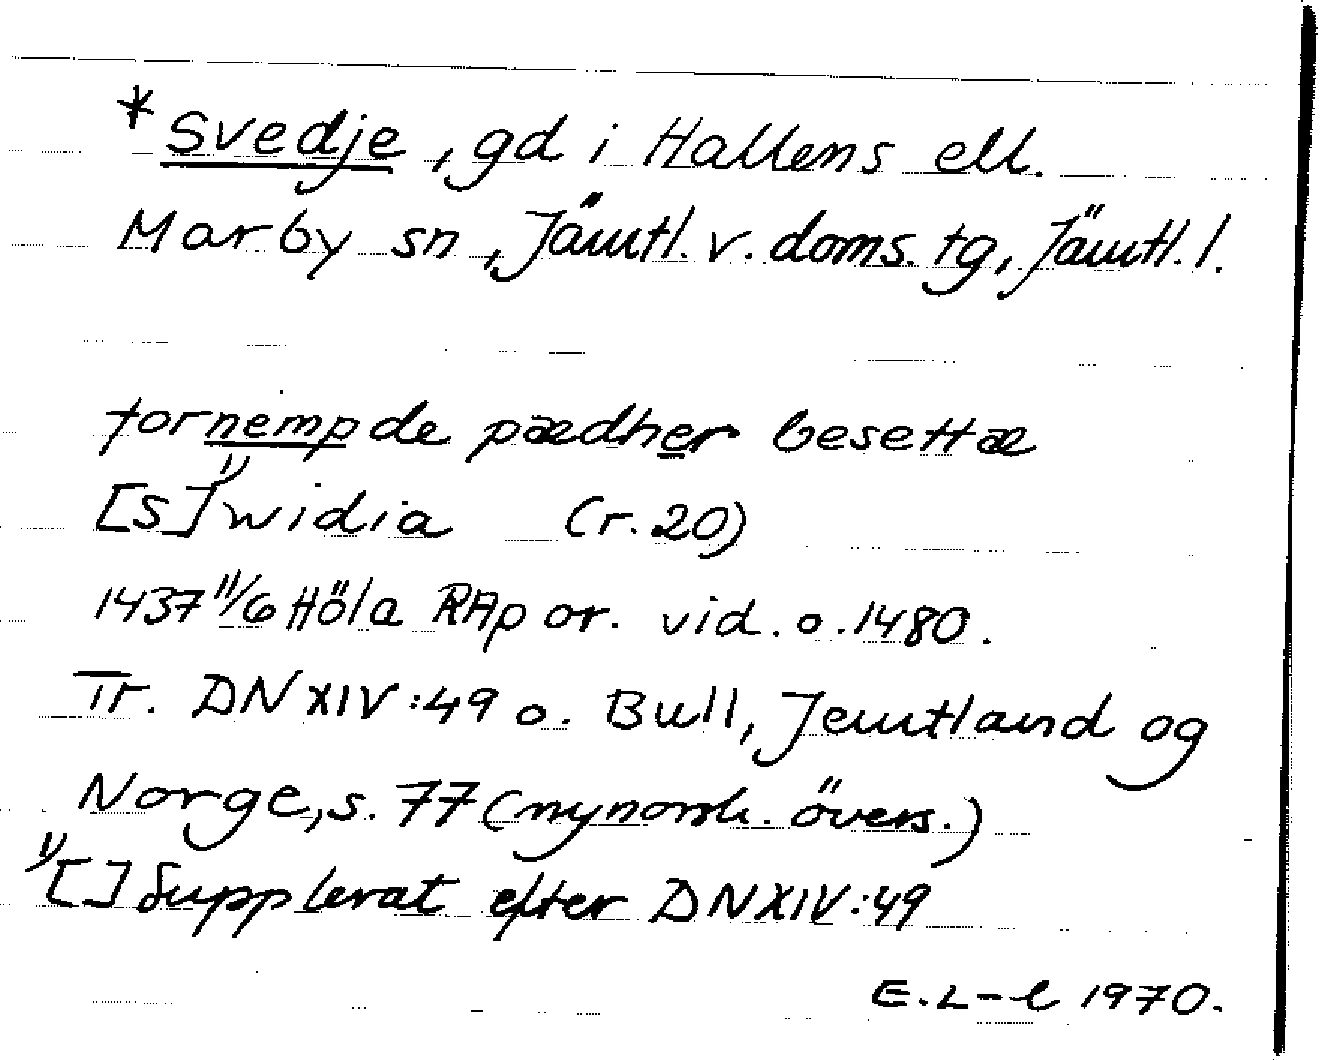 *Svedje, gd i Hallens ell.
Marby sn, Jämtl. v. doms. tg, Jämtl. l.
fornempde pædher besettæ
[S]¹⁾widia (r. 20)
1437 11/6 Höla RAp or. vid. o. 1480.
Tr. DN XIV:49 o. Bull, Jemtland og
Norge, s. 77 (nynorsk. övers.)
¹⁾[] Supplerat efter DN XIV:49
E. L-l 1970.